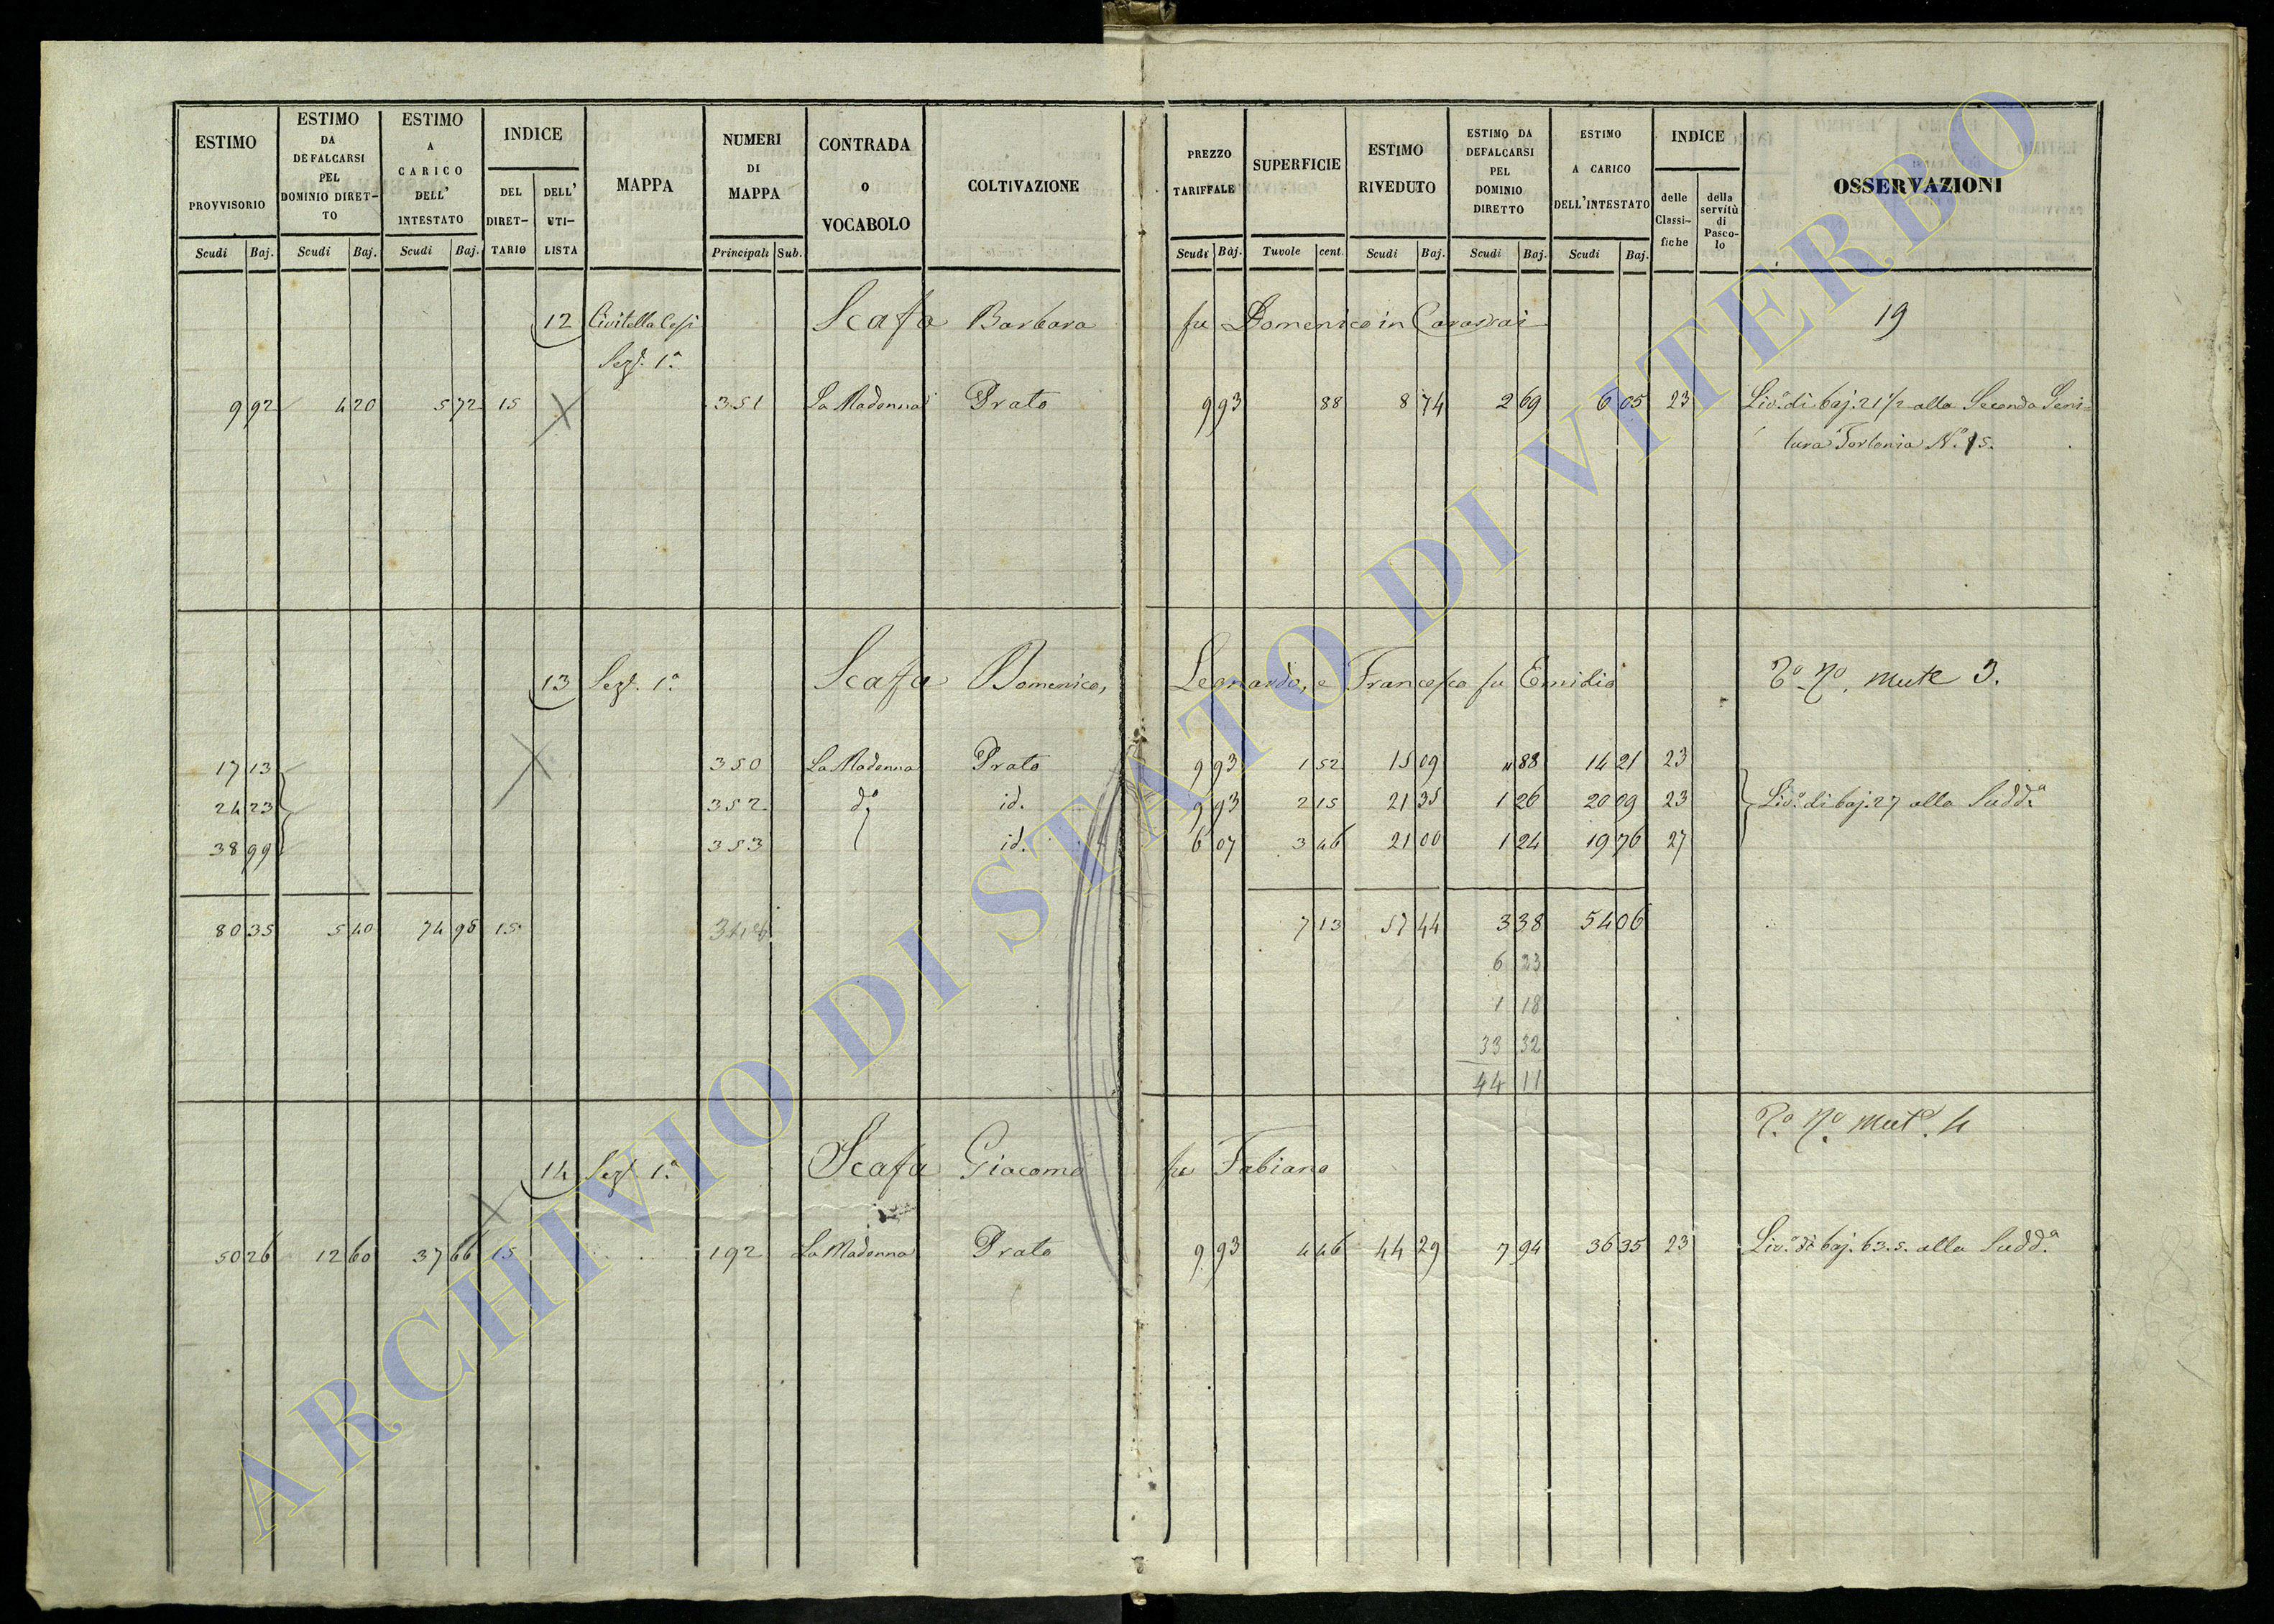 ESTIMO PROVVISORIO | ESTIMO DA DEFALCARSI PEL DOMINIO DIRETTO | ESTIMO A CARICO DELL' INTESTATO | INDICE | MAPPA | NUMERI DI MAPPA | CONTRADA O VOCABOLO | COLTIVAZIONE | PREZZO TARIFFALE | SUPERFICIE | ESTIMO RIVEDUTO | ESTIMO DA DEFALCARSI PEL DOMINIO DIRETTO | ESTIMO A CARICO DELL'INTESTATO | INDICE | OSSERVAZIONI
DEL DIRET-TARIO | DELL' UTI-LISTA | delle Classi-fiche | della servitù di Pasco-lo
Scudi | Baj. | Scudi | Baj. | Scudi | Baj. | Principali | Sub. | Scudi | Baj. | Tavole | cent. | Scudi | Baj. | Scudi | Baj. | Scudi | Baj.
12 Civitella Cesi Scafa Barbara fu Domenico in 19
Sez. 1ª
9 92 4 20 5 72 15 351 La Madonna Prato 9 93 88 8 74 2 69 6 05 23 Liv.º di baj. 21 1/2 alla Seconda Geni-
tura Torlonia N.º 15.
13 Sez. 1ª Scafa Domenico, Leonardo, e Francesco fu Emidio mut.e 3.
17 13 350 La Madonna Prato 9 93 1 52 15 09 " 88 14 21 23
24 23 352 dº id. 9 93 2 15 21 35 1 26 20 09 23 Liv.º di baj. 27 alla Sudd.ª
38 99 353 id. 6 07 3 46 21 00 1 24 19 76 27
80 35 5 40 74 95 15 7 13 57 44 3 38 54 06
6 23
1 18
33 32
44 11
mut.e 4
14 Sez. 1ª Scafa Giacomo fu Fabiano
50 26 12 60 37 66 15 192 La Madonna Prato 9 93 4 46 44 29 7 94 36 35 23 Liv.º di baj. 63.5. alla Sudd.ª
ARCHIVIO DI STATO DI VITERBO